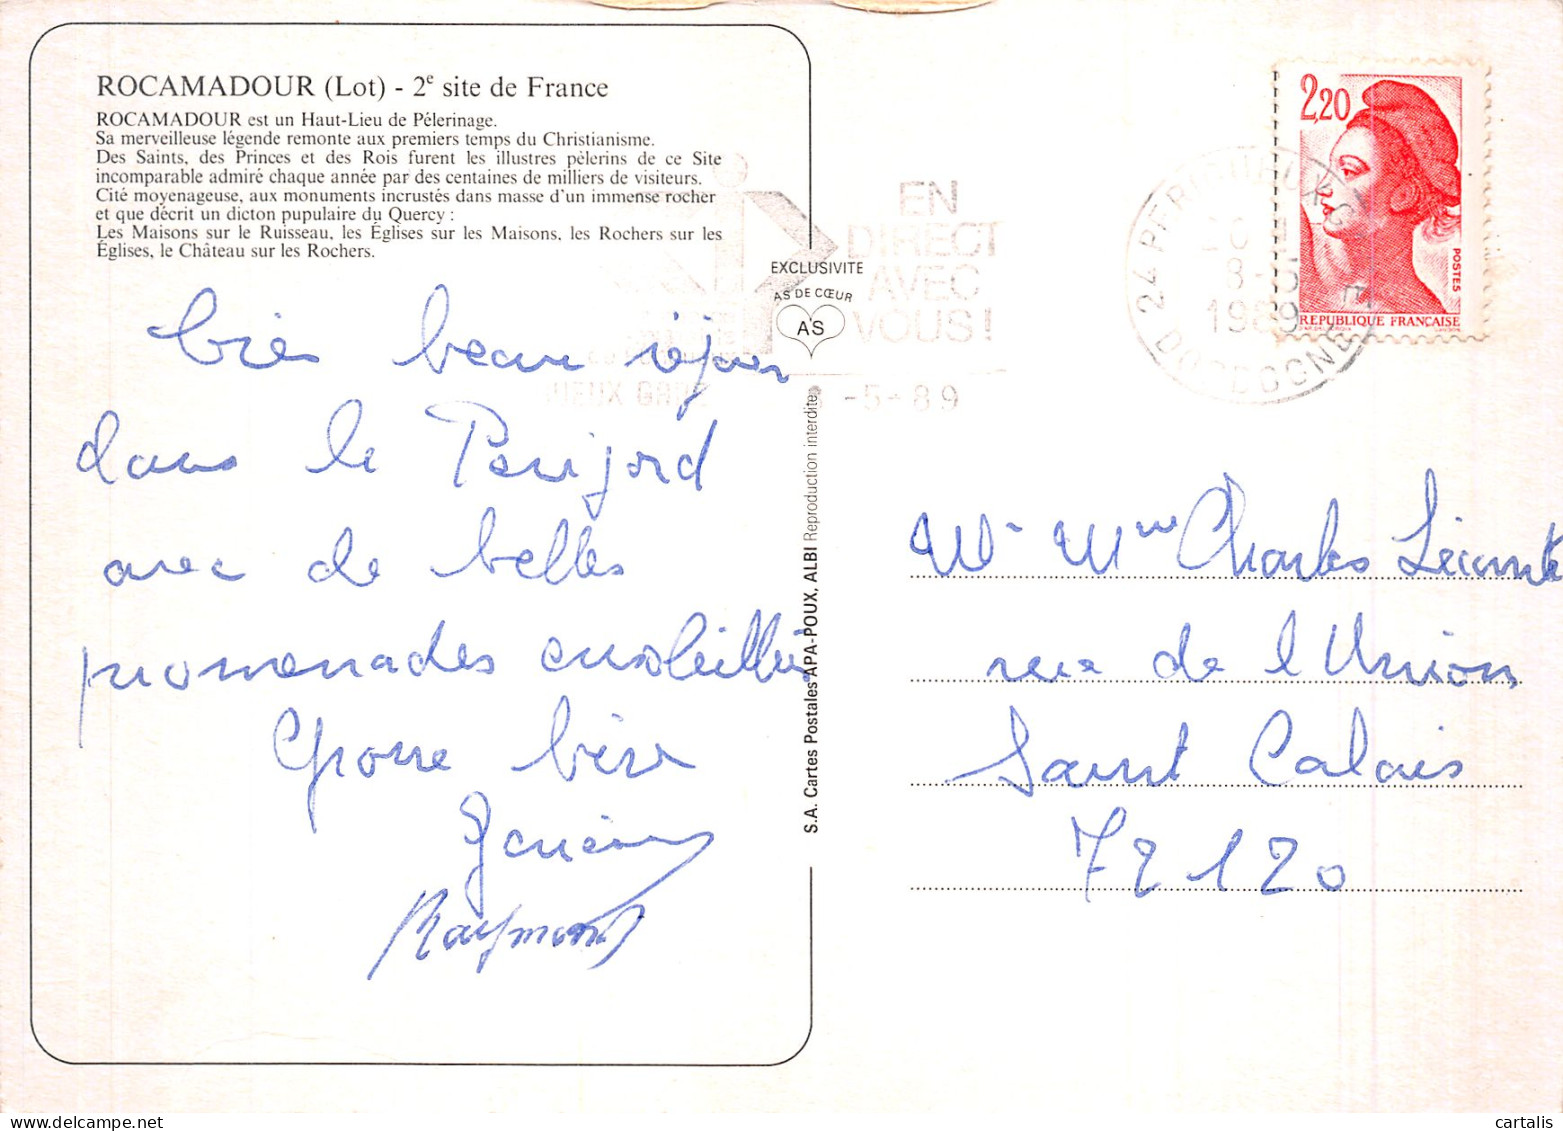 ROCAMADOUR (Lot) - 2e site de France
ROCAMADOUR est un Haut-Lieu de Pélerinage.
Sa merveilleuse légende remonte aux premiers temps du Christianisme.
Des Saints, des Princes et des Rois furent les illustres pèlerins de ce Site
incomparable admiré chaque année par des centaines de milliers de visiteurs.
Cité moyenageuse, aux monuments incrustés dans masse d'un immense rocher
et que décrit un dicton pupulaire du Quercy :
Les Maisons sur le Ruisseau, les Églises sur les Maisons, les Rochers sur les
Églises, le Château sur les Rochers.
bien beau séjour
dans le Périgord
avec de belles
promenades ensoleillées
Grosse bise
Raymond
EXCLUSIVITE
AS DE CŒUR
AS
S.A. Cartes Postales APA-POUX, ALBI Reproduction interdite
EN
DIRECT
AVEC
VOUS!
-5-89
24 PERIGUEUX
1989
DORDOGNE
2,20
POSTES
REPUBLIQUE FRANÇAISE
Mr Mme Charles Lecomte
rue de l Union
Saint Calais
72120
cartalis